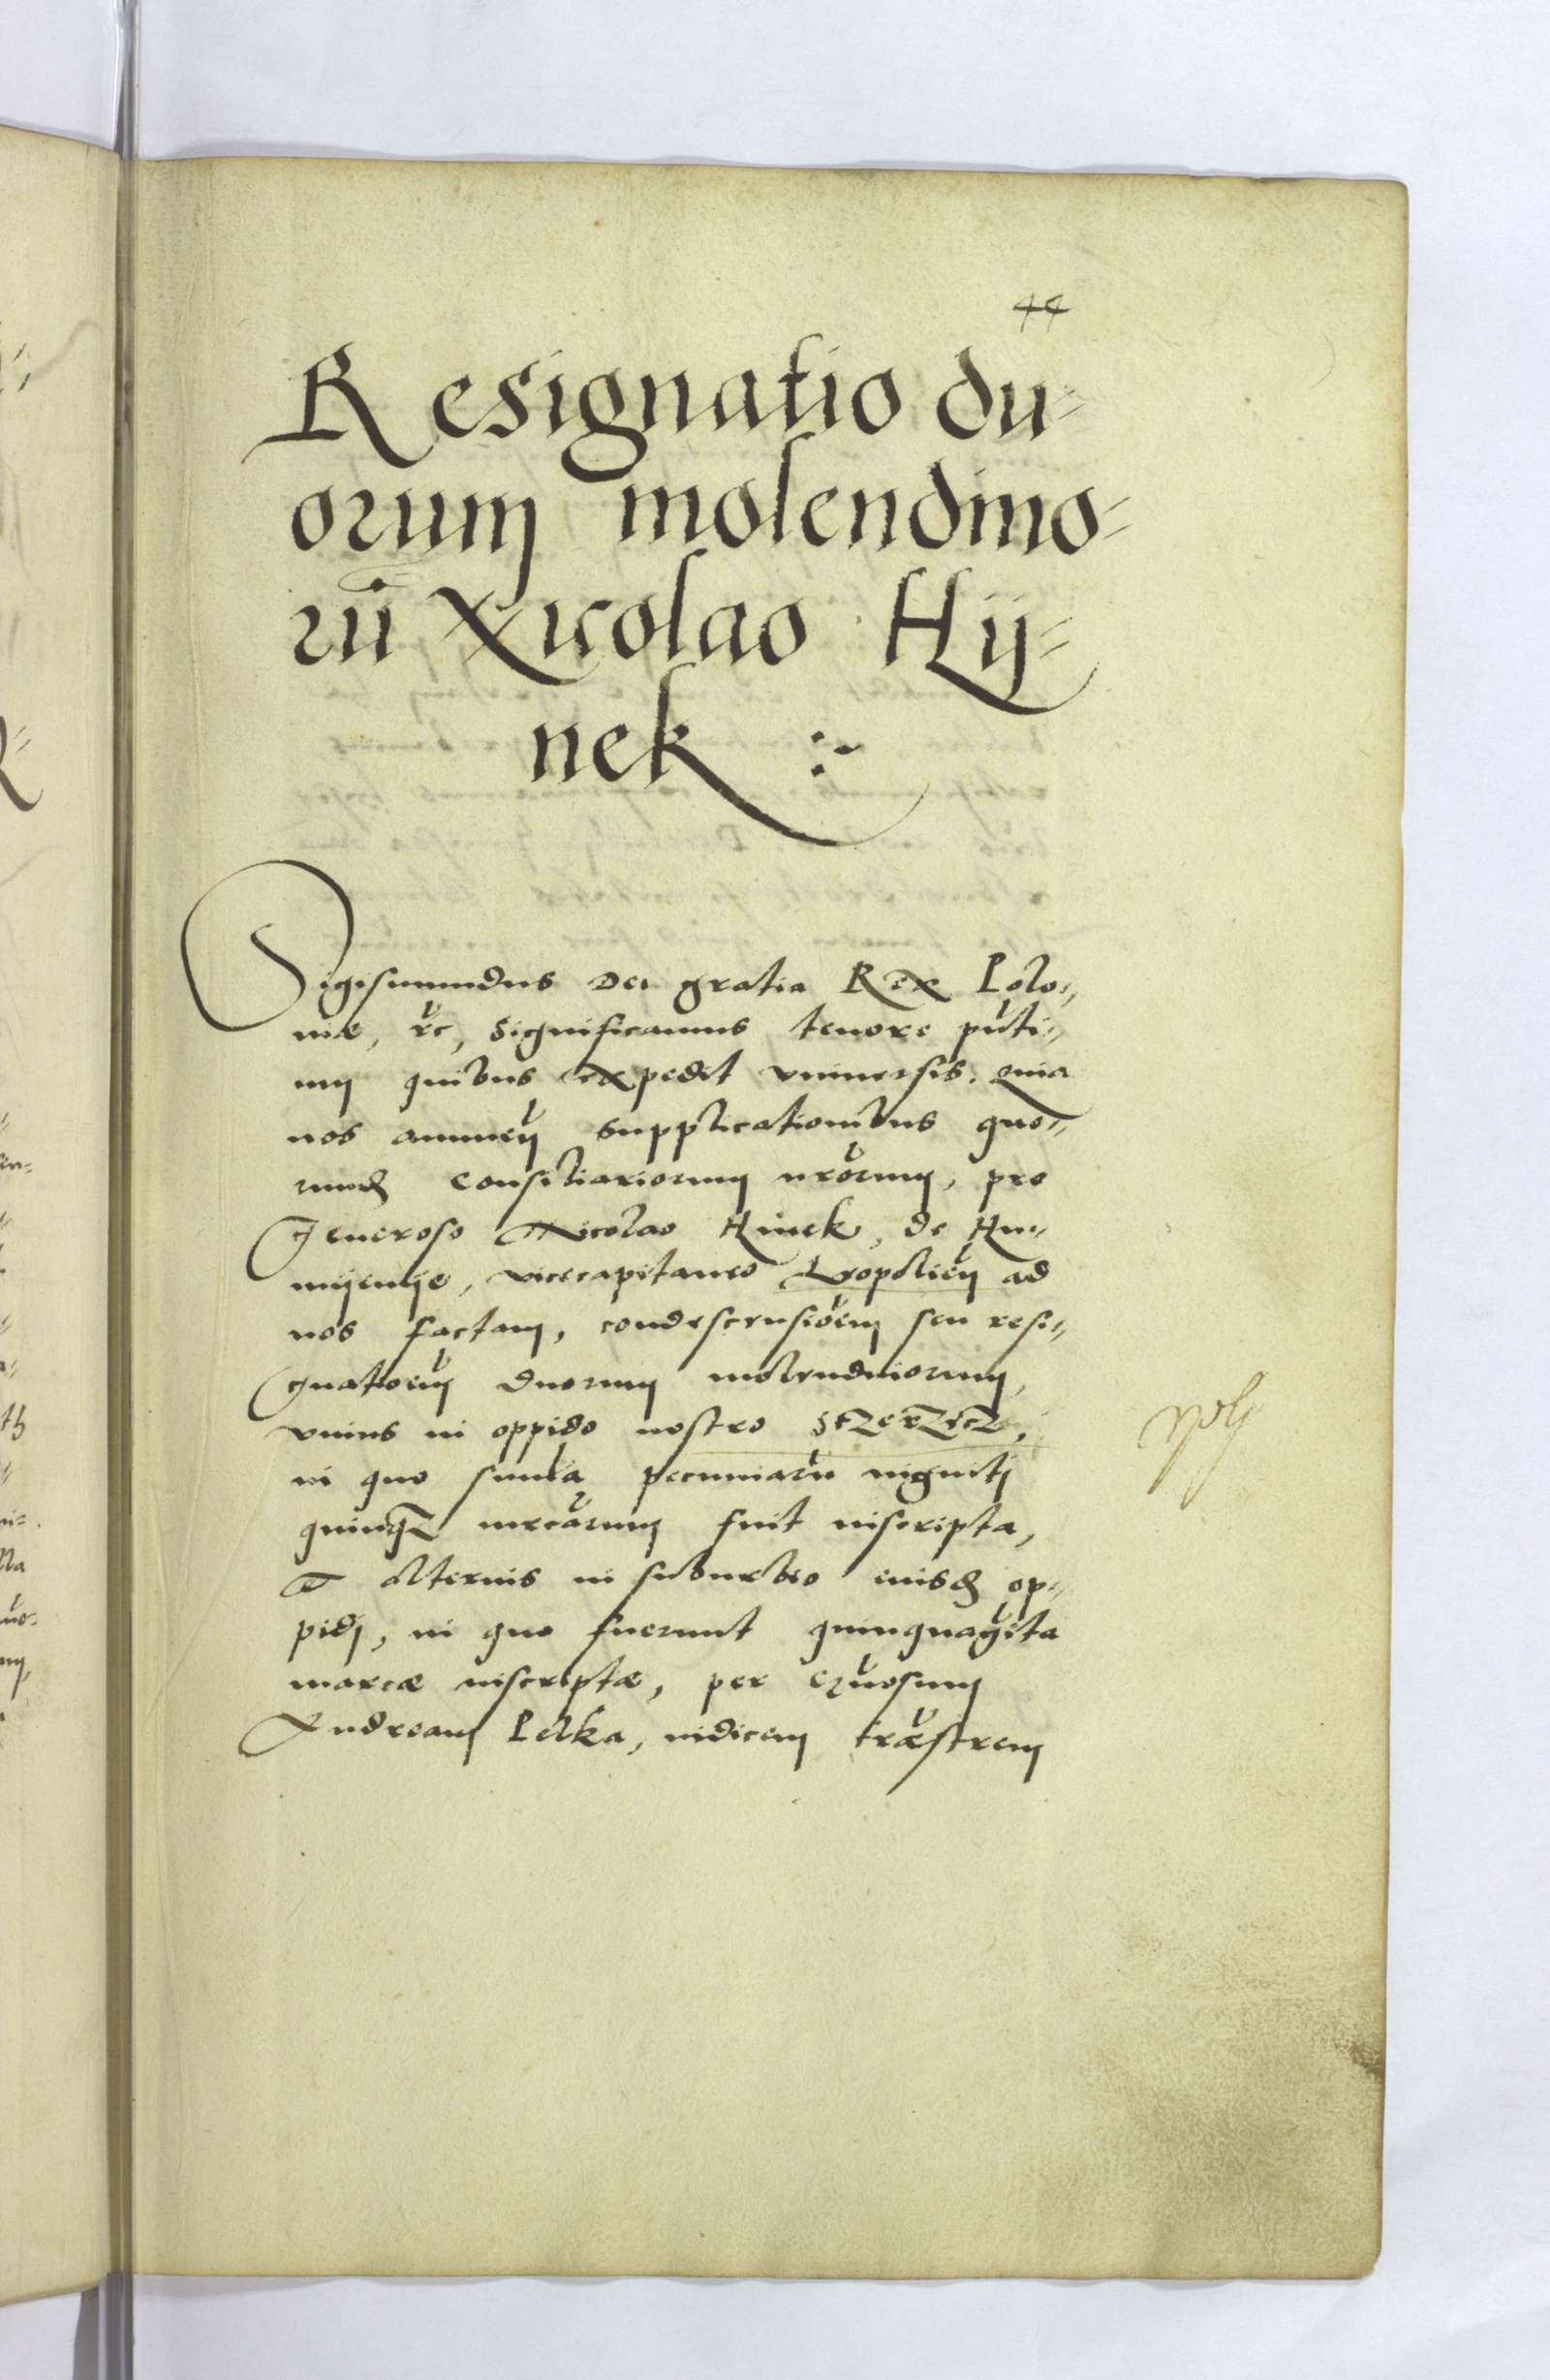 44
Resignatio du=
orum molendino=
rū Nicolao Hÿ=
nek :~
Sigismundus Dei gratia Rex Polo=
niæ, &c, significamus tenore pn̄ti=
um quibus expedit vniuersis. Quia
nos annuen̄ supplicationibus quo=
rund consiliariorum nr̄orum, pro
Generoso Nicolao Hinek, de Hu=
mÿenÿe, vicecapitaneo Leopolien̄ ad
nos factam, condescensiōem seu resi=
gnatioēm duorum molendinorum,
vnius in oppido nostro SczerZecZ,
in quo sum̄a pecuniarū viginti
quinqz mrcārum fuit inscripta,
& alterius in suburbio eiusd op=
pidi, in quo fuerunt quinquagīta
marcæ inscriptæ, per
Andream Pelka, iudicem trr̄æstrem